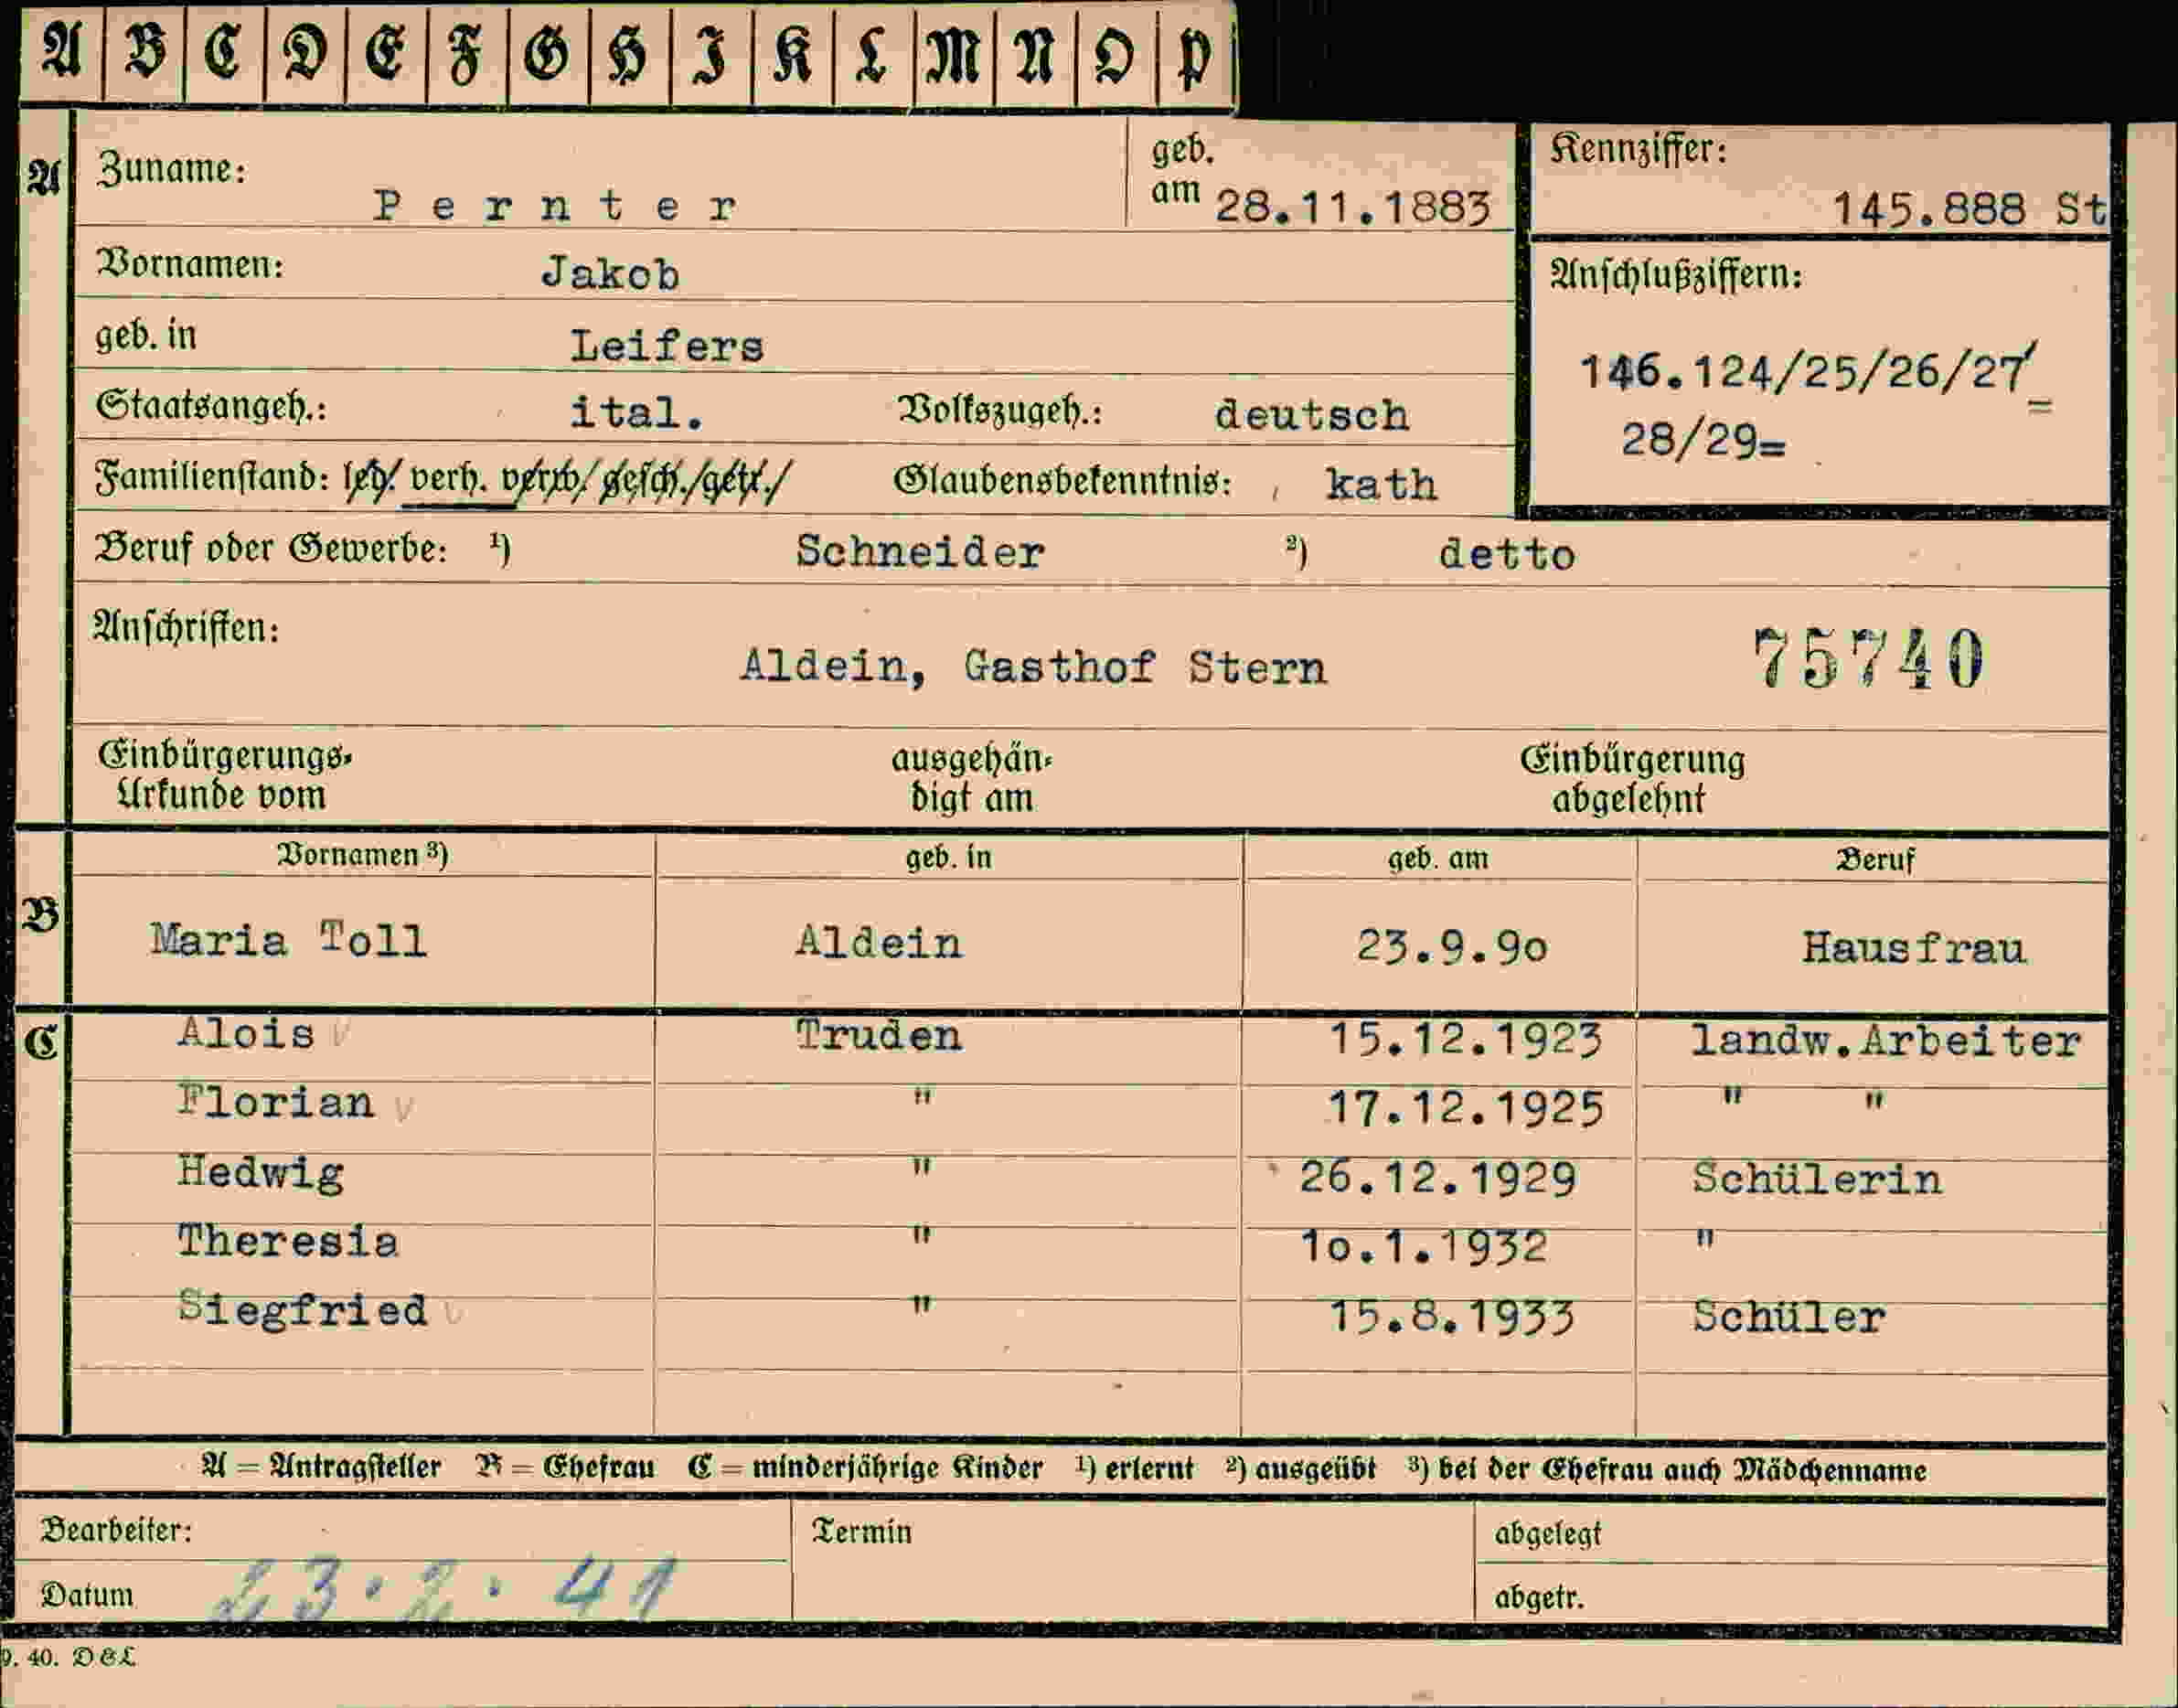 A B C D E F G H I K L M N O P
A Zuname: Pernter geb. am 28.11.1883 Kennziffer: 145.888 St
Vornamen: Jakob Anschlußziffern:
geb. in Leifers 146.124/25/26/27
Staatsangeh.: ital. Volkszugeh.: deutsch 28/29=
Familienstand: led. verh. verw. gesch. getr. Glaubensbekenntnis: kath
Beruf oder Gewerbe: ¹) Schneider ²) detto
Anschriften: Aldein, Gasthof Stern 75740
Einbürgerungs- ausgehän- Einbürgerung
Urkunde vom digt am abgelehnt
Vornamen ³) geb. in geb. am Beruf
B Maria Toll Aldein 23.9.90 Hausfrau
C Alois Truden 15.12.1923 landw.Arbeiter
Florian " 17.12.1925 " "
Hedwig " 26.12.1929 Schülerin
Theresia " 10.1.1932 "
Siegfried " 15.8.1933 Schüler
A = Antragsteller B = Ehefrau C = minderjährige Kinder ¹) erlernt ²) ausgeübt ³) bei der Ehefrau auch Mädchenname
Bearbeiter: Termin abgelegt
Datum 23.2.41 abgetr.
9. 40. D&L